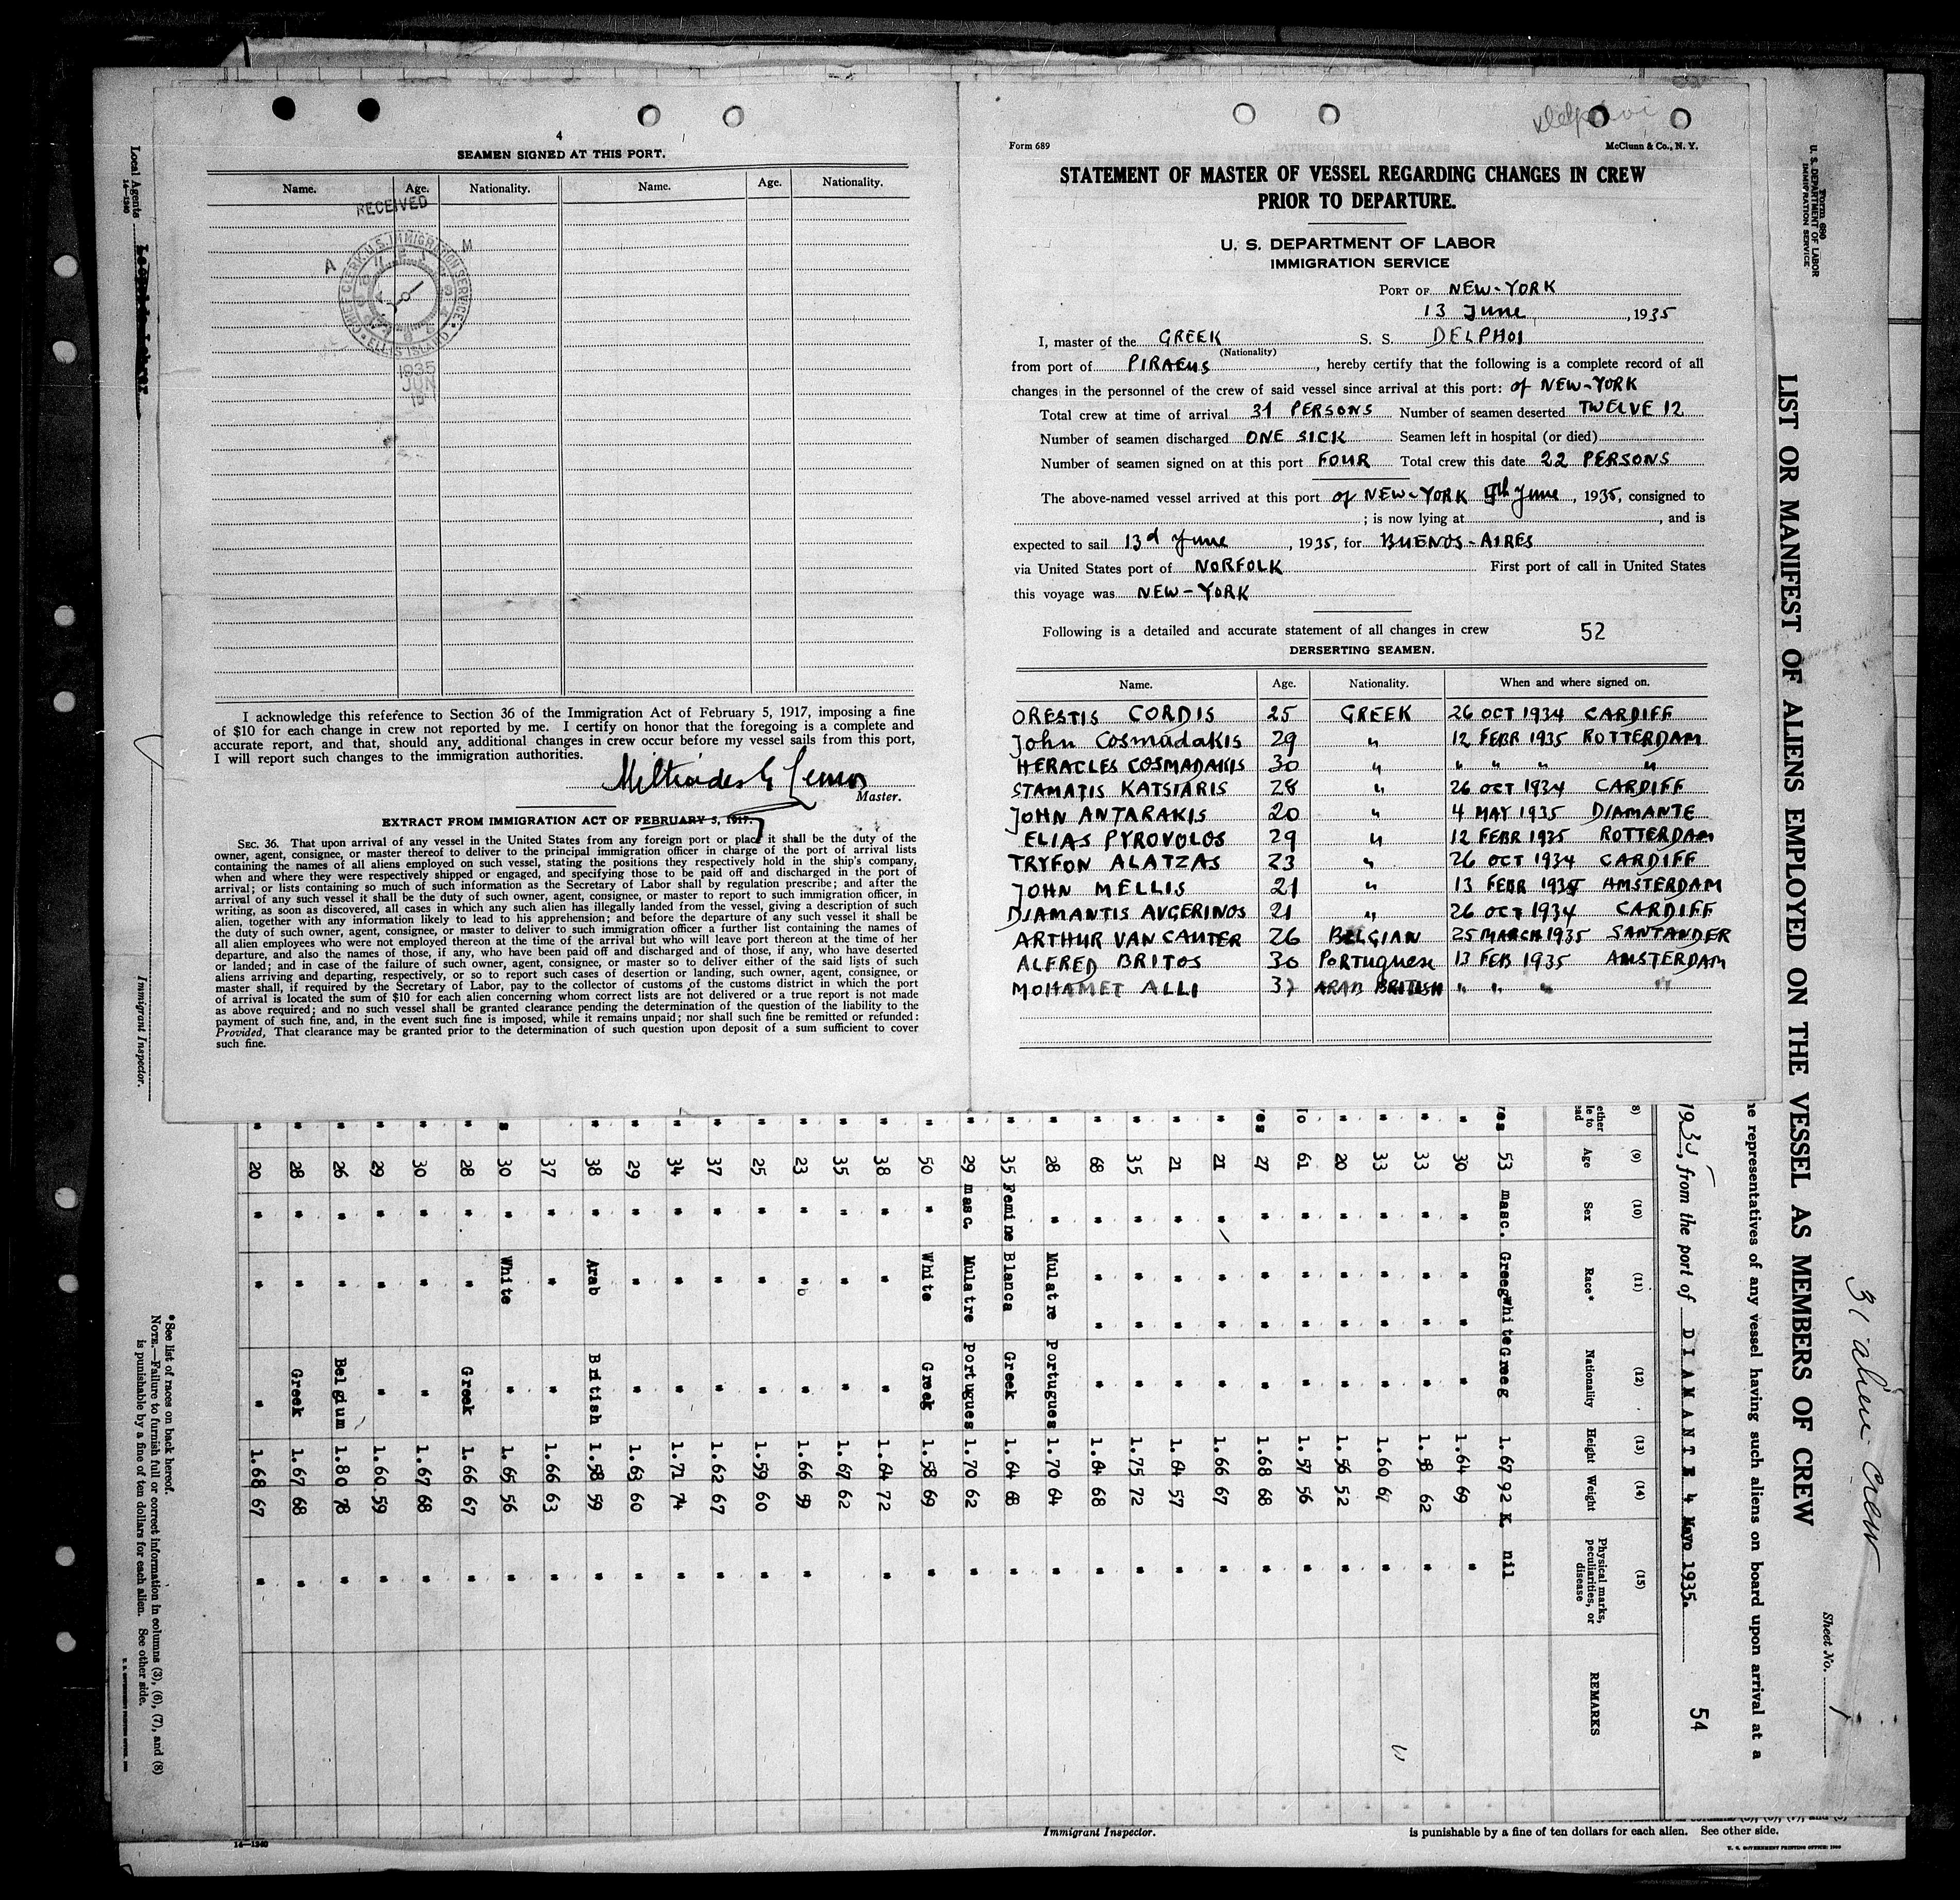 4
SEAMEN SIGNED AT THIS PORT.
Name. Age. Nationality. Name. Age. Nationality.
RECEIVED
A M
CHIEF CLERK U.S. IMMIGRATION SERVICE
ELLIS ISLAND
1935
JUN
I acknowledge this reference to Section 36 of the Immigration Act of February 5, 1917, imposing a fine
of $10 for each change in crew not reported by me. I certify on honor that the foregoing is a complete and
accurate report, and that, should any additional changes in crew occur before my vessel sails from this port,
I will report such changes to the immigration authorities.
Miltiades G Lemos
Master.
EXTRACT FROM IMMIGRATION ACT OF FEBRUARY 5, 1917.
SEC. 36. That upon arrival of any vessel in the United States from any foreign port or place it shall be the duty of the
owner, agent, consignee, or master thereof to deliver to the principal immigration officer in charge of the port of arrival lists
containing the names of all aliens employed on such vessel, stating the positions they respectively hold in the ship's company,
when and where they were respectively shipped or engaged, and specifying those to be paid off and discharged in the port of
arrival; or lists containing so much of such information as the Secretary of Labor shall by regulation prescribe; and after the
arrival of any such vessel it shall be the duty of such owner, agent, consignee, or master to report to such immigration officer, in
writing, as soon as discovered, all cases in which any such alien has illegally landed from the vessel, giving a description of such
alien, together with any information likely to lead to his apprehension; and before the departure of any such vessel it shall be
the duty of such owner, agent, consignee, or master to deliver to such immigration officer a further list containing the names of
all alien employees who were not employed thereon at the time of the arrival but who will leave port thereon at the time of her
departure, and also the names of those, if any, who have been paid off and discharged and of those, if any, who have deserted
or landed; and in case of the failure of such owner, agent, consignee, or master so to deliver either of the said lists of such
aliens arriving and departing, respectively, or so to report such cases of desertion or landing, such owner, agent, consignee, or
master shall, if required by the Secretary of Labor, pay to the collector of customs of the customs district in which the port
of arrival is located the sum of $10 for each alien concerning whom correct lists are not delivered or a true report is not made
as above required; and no such vessel shall be granted clearance pending the determination of the question of the liability to the
payment of such fine, and, in the event such fine is imposed, while it remains unpaid; nor shall such fine be remitted or refunded:
Provided, That clearance may be granted prior to the determination of such question upon deposit of a sum sufficient to cover
such fine.
Delphoi
Form 689 McClunn & Co., N. Y.
STATEMENT OF MASTER OF VESSEL REGARDING CHANGES IN CREW
PRIOR TO DEPARTURE.
U. S. DEPARTMENT OF LABOR
IMMIGRATION SERVICE
PORT OF NEW-YORK
13 June, 1935
I, master of the GREEK S. S. DELPHOI
(Nationality)
from port of PIRAEUS, hereby certify that the following is a complete record of all
changes in the personnel of the crew of said vessel since arrival at this port: of NEW-YORK
Total crew at time of arrival 31 PERSONS Number of seamen deserted TWELVE 12
Number of seamen discharged ONE SICK Seamen left in hospital (or died)
Number of seamen signed on at this port FOUR Total crew this date 22 PERSONS
The above-named vessel arrived at this port of NEW-YORK 5th June, 1935, consigned to
; is now lying at , and is
expected to sail 13d June, 1935, for BUENOS-AIRES
via United States port of NORFOLK First port of call in United States
this voyage was NEW-YORK
Following is a detailed and accurate statement of all changes in crew 52
DERSERTING SEAMEN.
Name. Age. Nationality. When and where signed on.
ORESTIS CORDIS 25 GREEK 26 OCT 1934 CARDIFF
John Cosmadakis 29 " 12 FEBR 1935 ROTTERDAM
HERACLES COSMADAKIS 30 " " " " "
STAMATIS KATSIARIS 28 " 26 OCT 1934 CARDIFF
JOHN ANTARAKIS 20 " 4 MAY 1935 DIAMANTE
ELIAS PYROVOLOS 29 " 12 FEBR 1935 ROTTERDAM
TRYFON ALATZAS 23 " 26 OCT 1934 CARDIFF
JOHN MELLIS 21 " 13 FEBR 1935 AMSTERDAM
DIAMANTIS AVGERINOS 21 " 26 OCT 1934 CARDIFF
ARTHUR VAN CAUTER 26 BELGIAN 25 MARCH 1935 SANTANDER
ALFRED BRITOS 30 Portuguese 13 FEB 1935 AMSTERDAM
MOHAMET ALLI 37 ARAB BRITISH " " " "
Form 680
U. S. DEPARTMENT OF LABOR
IMMIGRATION SERVICE
LIST OR MANIFEST OF ALIENS EMPLOYED ON THE VESSEL AS MEMBERS OF CREW
31 alien crew
Sheet No. 1
he representatives of any vessel having such aliens on board upon arrival at a
1935, from the port of DIAMANTE 4 Mayo 1935.
54
(8) (9) (10) (11) (12) (13) (14) (15)
Age Sex Race* Nationality Height Weight Physical marks, peculiarities, or disease REMARKS
53 masc. Greeg White Greeg 1.67 92 K. nil
30 " " " " 1.64 69 "
33 " " " " 1.58 62
33 " " " " 1.60 67 "
20 " " " " 1.56 52 "
61 " " " " 1.57 56 "
27 " " " " 1.68 68 "
21 " " " " 1.66 67 "
21 " " " " 1.64 57 "
35 " " " " 1.75 72 "
68 " " " " 1.64 68 "
28 " Mulatre Portugues 1.70 64 "
35 Femine Blanca Greek 1.64 68 "
29 masc. Mulatre Portugues 1.70 62 "
50 " White Greek 1.58 69 "
38 " " " 1.64 72 "
35 " " " 1.67 62
23 " " " 1.66 59 "
25 " " " 1.59 60 "
37 " " " 1.62 67 "
34 " " " 1.71 74 "
29 " " " 1.63 60 "
38 " Arab British 1.58 59 "
37 " " " 1.66 63 "
30 " White " 1.65 56 "
28 " " Greek 1.66 67 "
30 " " " 1.67 68 "
29 " " " 1.60 59 "
26 " " Belgium 1.80 78 "
28 " " Greek 1.67 68 "
20 " " " 1.68 67 "
Local Agents
14—1240
Immigrant Inspector.
*See list of races on back hereof.
NOTE.—Failure to furnish full or correct information in columns (3), (6), (7), and (8)
is punishable by a fine of ten dollars for each alien. See other side.
14—1240
Immigrant Inspector.
is punishable by a fine of ten dollars for each alien. See other side.
U. S. GOVERNMENT PRINTING OFFICE